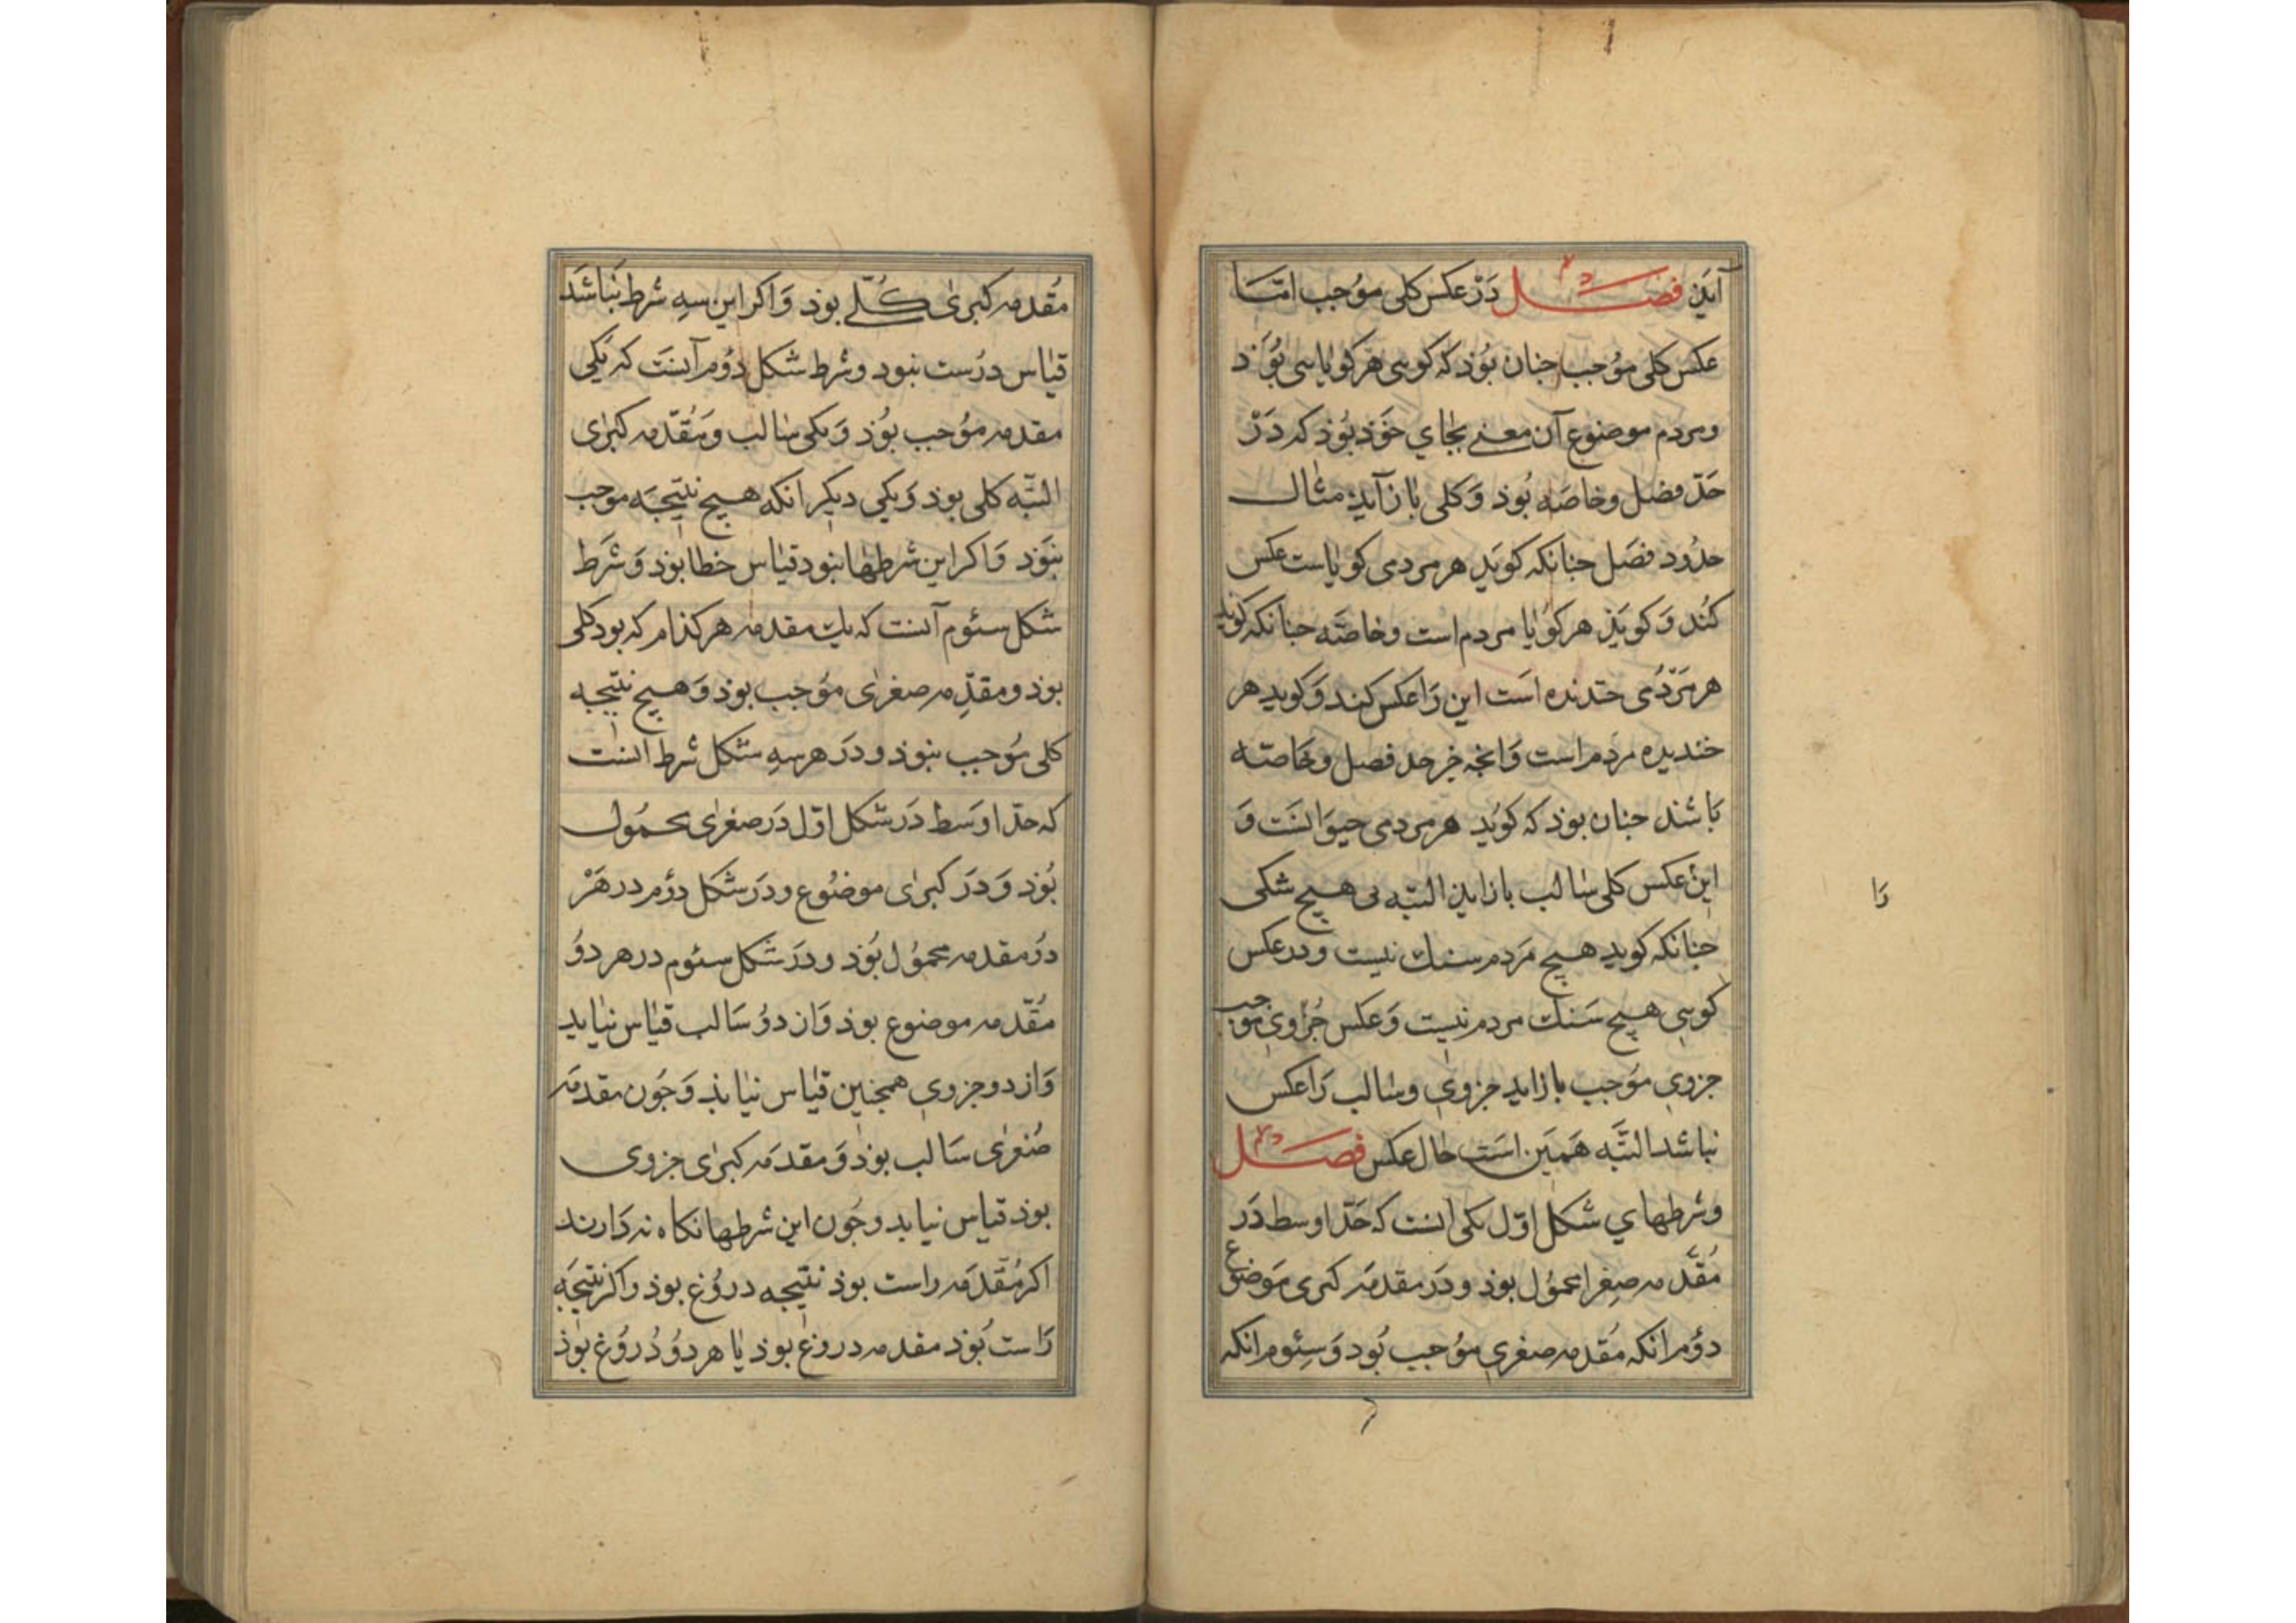 آیذ فصل دَرْ عکس کلی موُجب امّا
عکس کلی موُجب جنان بوُذ که کوسی هر کویا سی بوُذ
ومردم موضنوع آن معنے بجای خوَذ بوُذ که دَرْ
حَدّ فصل وخاصَه بوُذ وَکلی باز آیذ مثال
حدوُد فصَل جنانکه کویَد هر مردی کویاست عکس
کنُد وَکویَذ هر کوُیا مردم است وخاصَّه جنانکه کویذ
هر مَردُمی خندنده است این رَا عکس کنند وَکوید هر
خندیده مردم است وَانجه جز حد فصل وخاصّه
بَاشَد جنان بوذ که کویُد هر مردمی حیوَانسَت وَ
این عکس کلی سالب باز ایذ البتّه بی هیچ شکی
جنانکه کوید هیچ مَردم سنک نیست ودر عکس
کوسی هیچ سَنک مردم نیست وَعکس جُزوی موجب
جزوی موُجب باز اید جزوی وسالب رَا عکس
نباشد البتَّه هَمین است حال عکس فصل
وشرطهای شکل اوّل یکی انست که حَدّ اوسط دَر
مُقدّمه صِغرا محموُل بوذ ودَر مقدمَه کبری مَوضوع
دوُم انکه مُقدمه صغری موُجب بُود وَسِئوم انکه
رَا
مُقدمه کبریٰ کُلّے بوذ وَاکر این سهِ شرط نَباشَد
قیاس درُست نبود وشرط شکل دوُم آنسَت که یَکی
مقدمه موُجب بوُذ وَیکی سالب ومَقُدّمه کبرٰی
البتّه کلی بوذ وَیکی دیکر انکه هیچ نتیجَه موجب
نبوَذ وَاکر این شرطها نبود قیاس خطا بوذ وَشرَط
شکل سئوم آنست که یک مقدمه هر کذام که بود کلی
بوذ ومقدِّمه صغرٰی موُجب بوذ وَهیچ نتیجه
کلی موُجب نبوذ ودَر هر سهِ شکل شرط انست
که حدّ اوسَط دَر شکل اوّل دَر صغرٰی محمُول
بوُذ وَدَر کبرٰی موضوُع ودَر شکل دوُم در هَرْ
دوُ مقدمه محموُل بوُذ ودَر شکل سئوم در هر دوُ
مُقدّمه موضنوع بوذ وَاز دوُ سَالب قیاس نیاید
وَاز دو جزوی همجنین قیاس نیایذ وَجوُن مقدمَه
صُغرٰی سَالب بوذ وَمقدمَه کبرٰی جزوی
بوذ قیاس نیاید وجوُن این شرطها نکاه نه دَارند
اکر مُقدّمَه راست بوذ نتیجه دروُغ بوذ واکر نتیجَه
رَاست بوُذ مقدمه دروغ بوذ یا هر دوُ دُروُغ بوذ